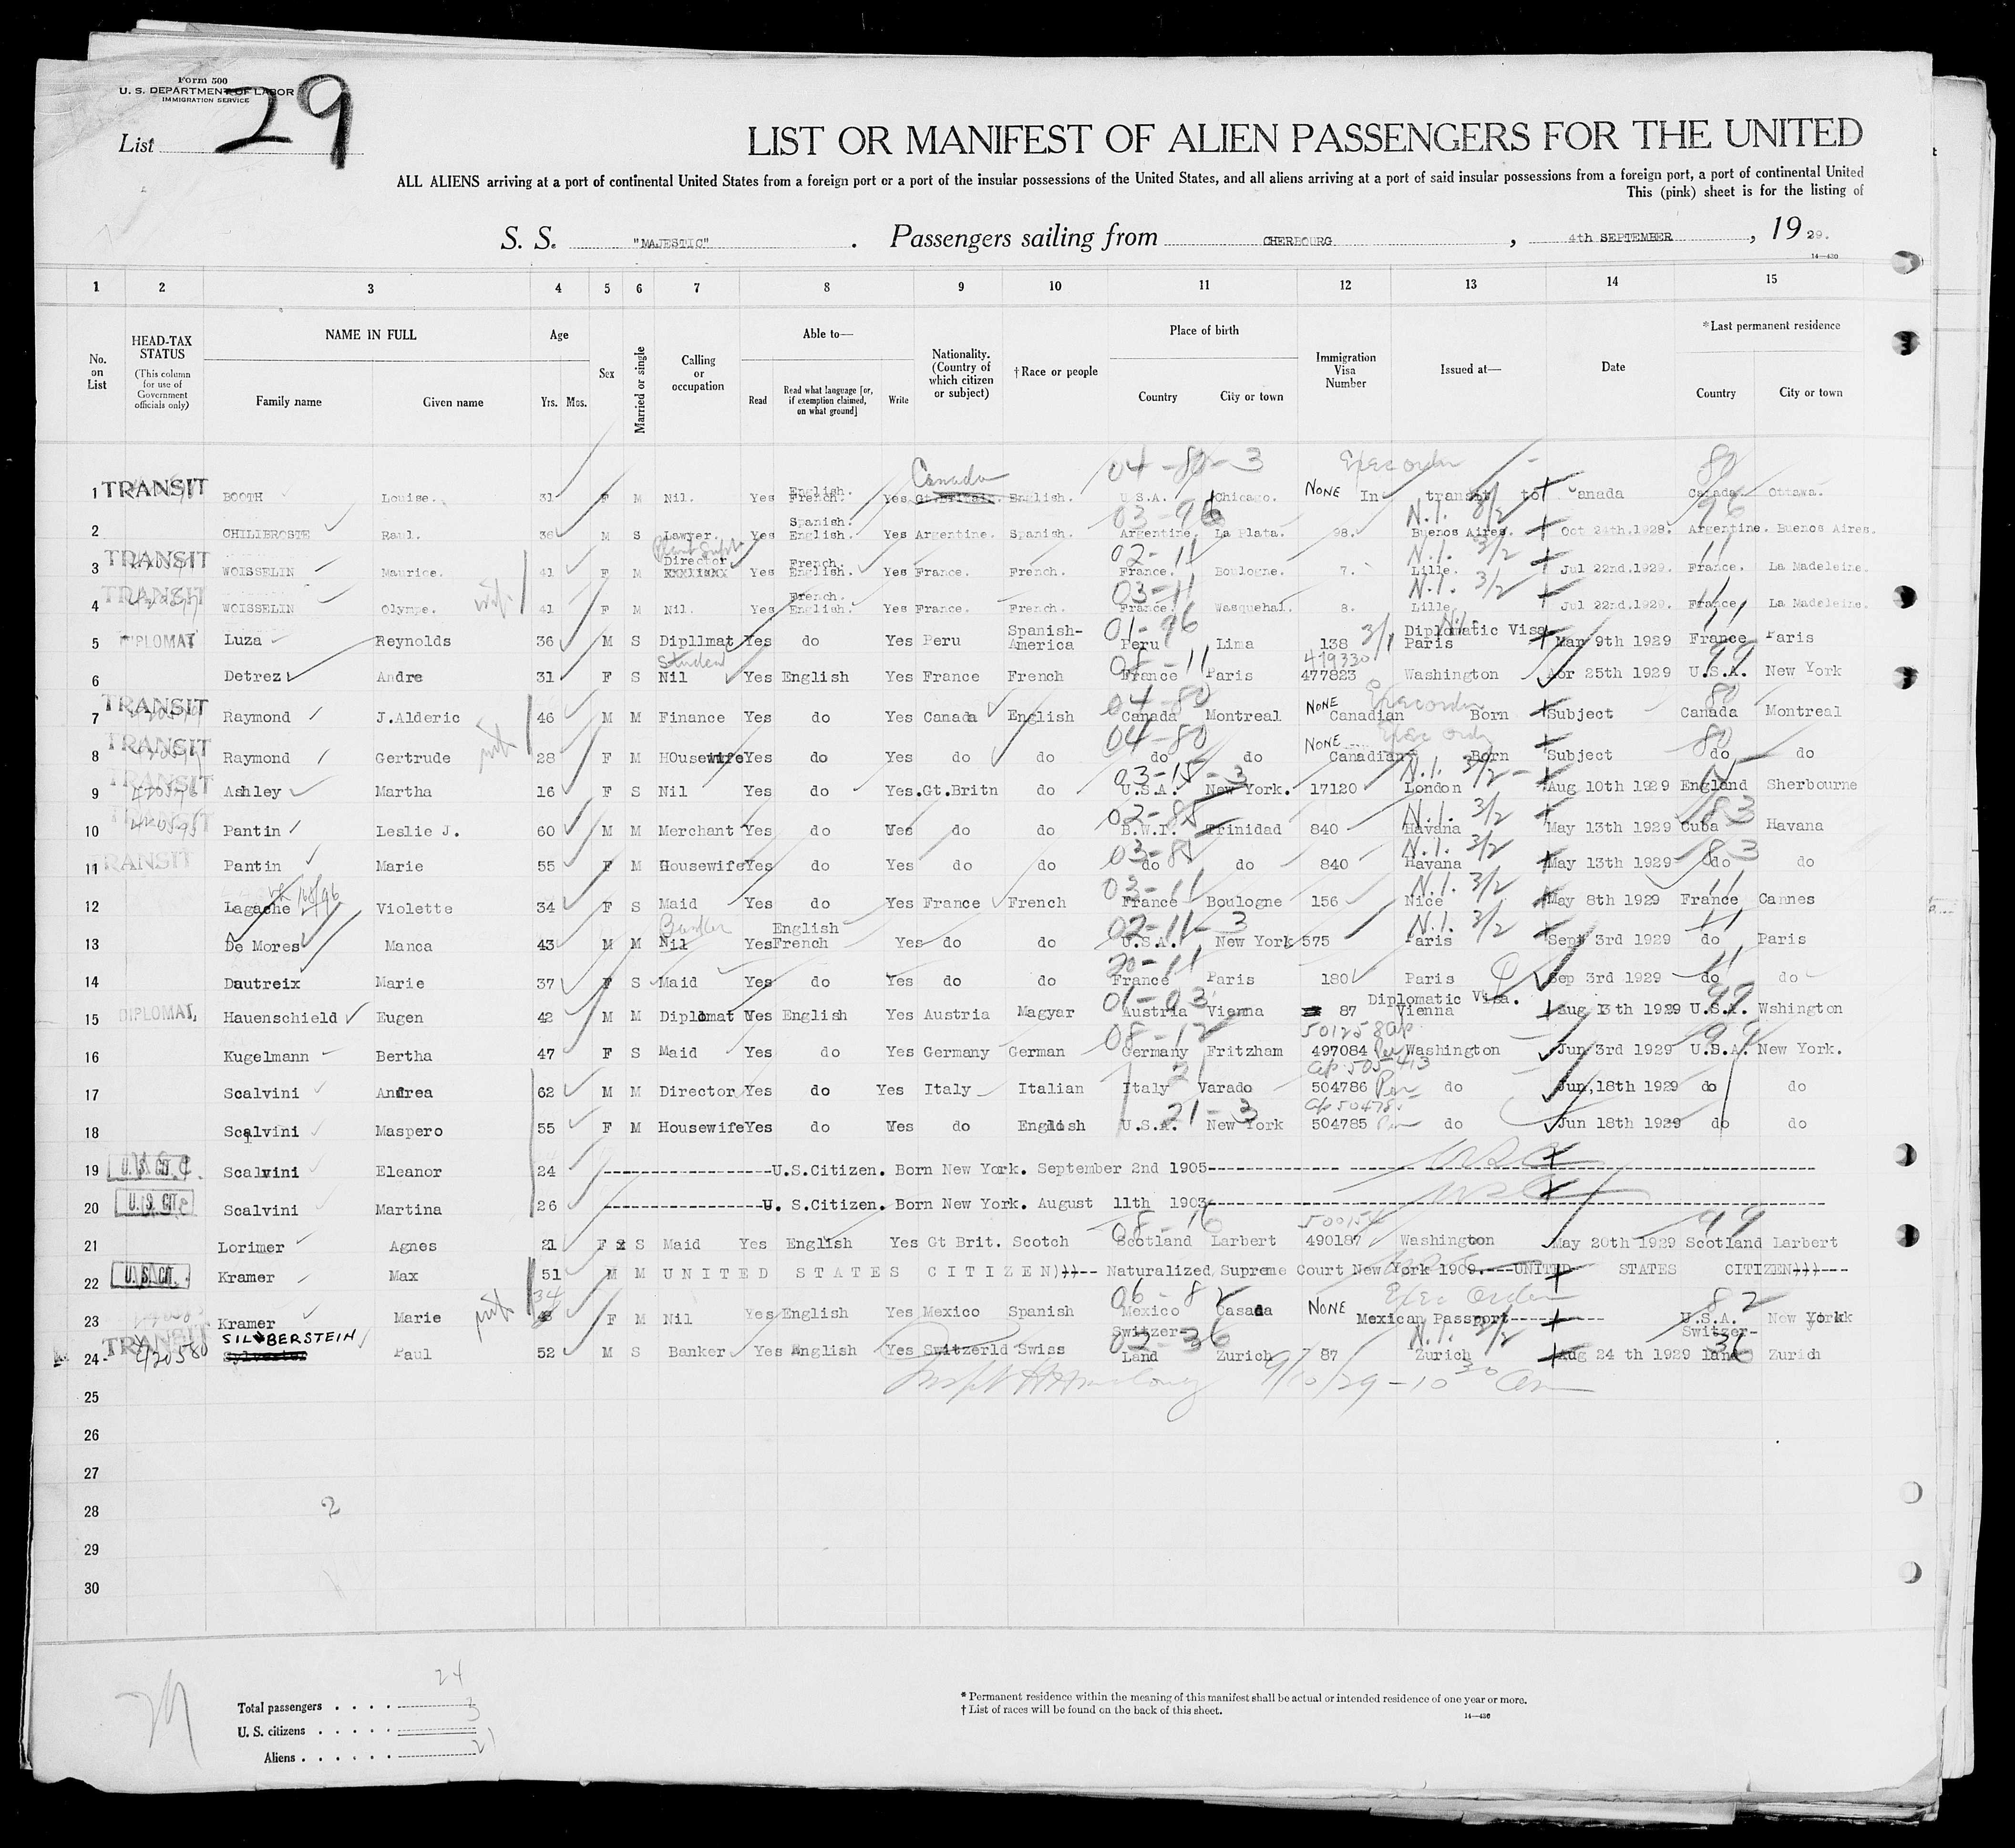 Form 500
U. S. DEPARTMENT OF LABOR
IMMIGRATION SERVICE
List 29
LIST OR MANIFEST OF ALIEN PASSENGERS FOR THE UNITED
ALL ALIENS arriving at a port of continental United States from a foreign port or a port of the insular possessions of the United States, and all aliens arriving at a port of said insular possessions from a foreign port, a port of continental United
This (pink) sheet is for the listing of
S. S. "MAJESTIC" . Passengers sailing from CHERBOURG , 4th SEPTEMBER , 19 29.
14—430
1 2 3 4 5 6 7 8 9 10 11 12 13 14 15
No. on List
HEAD-TAX STATUS (This column for use of Government officials only)
NAME IN FULL
Family name Given name
Age
Yrs. Mos.
Sex
Married or single
Calling or occupation
Able to—
Read
Read what language [or, if exemption claimed, on what ground]
Write
Nationality. (Country of which citizen or subject)
†Race or people
Place of birth
Country City or town
Immigration Visa Number
Issued at—
Date
*Last permanent residence
Country City or town
Canada 04-80-3 Exec order 80
1 TRANSIT BOOTH Louise. 31 F M Nil. Yes English. French. Yes Gt.Britain. English. U.S.A. Chicago. NONE In transit to Canada Canada. Ottawa.
03-96 N.I. 3/2 96
2 CHILIBROSTE Raul. 36 M S Lawyer. Yes Spanish. English. Yes Argentine. Spanish. Argentine. La Plata. 98. Buenos Aires. Oct 24th.1928. Argentine. Buenos Aires.
02-11 N.I. 3/2 11
3 TRANSIT WOISSELIN Maurice. 41 F M Director Yes French. English. Yes France. French. France. Boulogne. 7. Lille. Jul 22nd.1929. France. La Madeleine.
03-11 N.I. 3/2 11
4 TRANSIT WOISSELIN Olympe. wife 41 F M Nil. Yes French. English. Yes France. French. France. Wasquehal. 8. Lille. Jul 22nd.1929. France. La Madeleine.
01-96 N.I. 3/1
5 DIPLOMAT Luza Reynolds 36 M S Dipllmat Yes do Yes Peru Spanish-America Peru Lima 138 Diplomatic Visa Paris Mar 9th 1929 France Paris
Student 08-11 479330 99
6 Detrez Andre 31 F S Nil Yes English Yes France French France Paris 477823 Washington Apr 25th 1929 U.S.A. New York
04-80 Exec order 80
7 TRANSIT Raymond J.Alderic 46 M M Finance Yes do Yes Canada English Canada Montreal NONE Canadian Born Subject Canada Montreal
04-80 Exec order 80
8 TRANSIT Raymond Gertrude wife 28 F M HOusewife Yes do Yes do do do do NONE Canadian Born Subject do do
03-15-3 N.I. 3/2 15
9 TRANSIT Ashley Martha 16 F S Nil Yes do Yes. Gt.Britn do U.S.A. New York. 17120 London Aug 10th 1929 England Sherbourne
02-85 N.I. 3/2 83
10 TRANSIT Pantin Leslie J. 60 M M Merchant Yes do Yes do do B.W.I. Trinidad 840 Havana May 13th 1929 Cuba Havana
03-85 N.I. 3/2 83
11 TRANSIT Pantin Marie 55 F M Housewife Yes do Yes do do do do 840 Havana May 13th 1929 do do
03-11 N.I. 3/2 11
12 Lagache Violette 34 F S Maid Yes do Yes France French France Boulogne 156 Nice May 8th 1929 France Cannes
Banker 02-11-3 N.I. 3/2 11
13 De Mores Manca 43 M M Nil Yes English French Yes do do U.S.A. New York 575 Paris Sept 3rd 1929 do Paris
20-11 11
14 Dautreix Marie 37 F S Maid Yes do Yes do do France Paris 180 Paris Sep 3rd 1929 do do
01-03 99
15 DIPLOMAT, Hauenschield Eugen 42 M M Diplomat Yes English Yes Austria Magyar Austria Vienna 87 Diplomatic Visa. Vienna Aug 13th 1929 U.S.A. Wshington
08-12 501258 99
16 Kugelmann Bertha 47 F S Maid Yes do Yes Germany German Germany Fritzham 497084 Washington Jun 3rd 1929 U.S.A. New York.
505413
17 Scalvini Andrea 62 M M Director Yes do Yes Italy Italian Italy Varado 504786 do Jun,18th 1929 do do
21-3
18 Scalvini Maspero 55 F M Housewife Yes do Yes do English U.S.A. New York 504785 do Jun 18th 1929 do do
19 U. S. CIT. Scalvini Eleanor 24 ---U.S.Citizen. Born New York. September 2nd 1905---
20 U. S. CIT. Scalvini Martina 26 ---U. S.Citizen. Born New York. August 11th 1903---
08-16 500154 99
21 Lorimer Agnes 21 F S Maid Yes English Yes Gt Brit. Scotch Scotland Larbert 490187 Washington May 20th 1929 Scotland Larbert
22 U. S. CIT. Kramer Max 51 M M UNITED STATES CITIZEN)))-- Naturalized Supreme Court New York 1909.---UNITED STATES CITIZEN)))---
34 06-82 Exec Order 82
23 Kramer Marie wife F M Nil Yes English Yes Mexico Spanish Mexico Casada NONE Mexican Passport--- U.S.A. New York
02-36 N.I. 3/2 36
24 TRANSIT 420580 SILBERSTEIN Paul 52 M S Banker Yes English Yes Switzerld Swiss Switzer-Land Zurich 87 Zurich Aug 24 th 1929 Switzer-land Zurich
9/10/29-10 30 am
25
26
27
28 2
29
30
24
Total passengers . . . . 3
U. S. citizens . . . . .
Aliens . . . . . . 21
* Permanent residence within the meaning of this manifest shall be actual or intended residence of one year or more.
† List of races will be found on the back of this sheet.
14—430